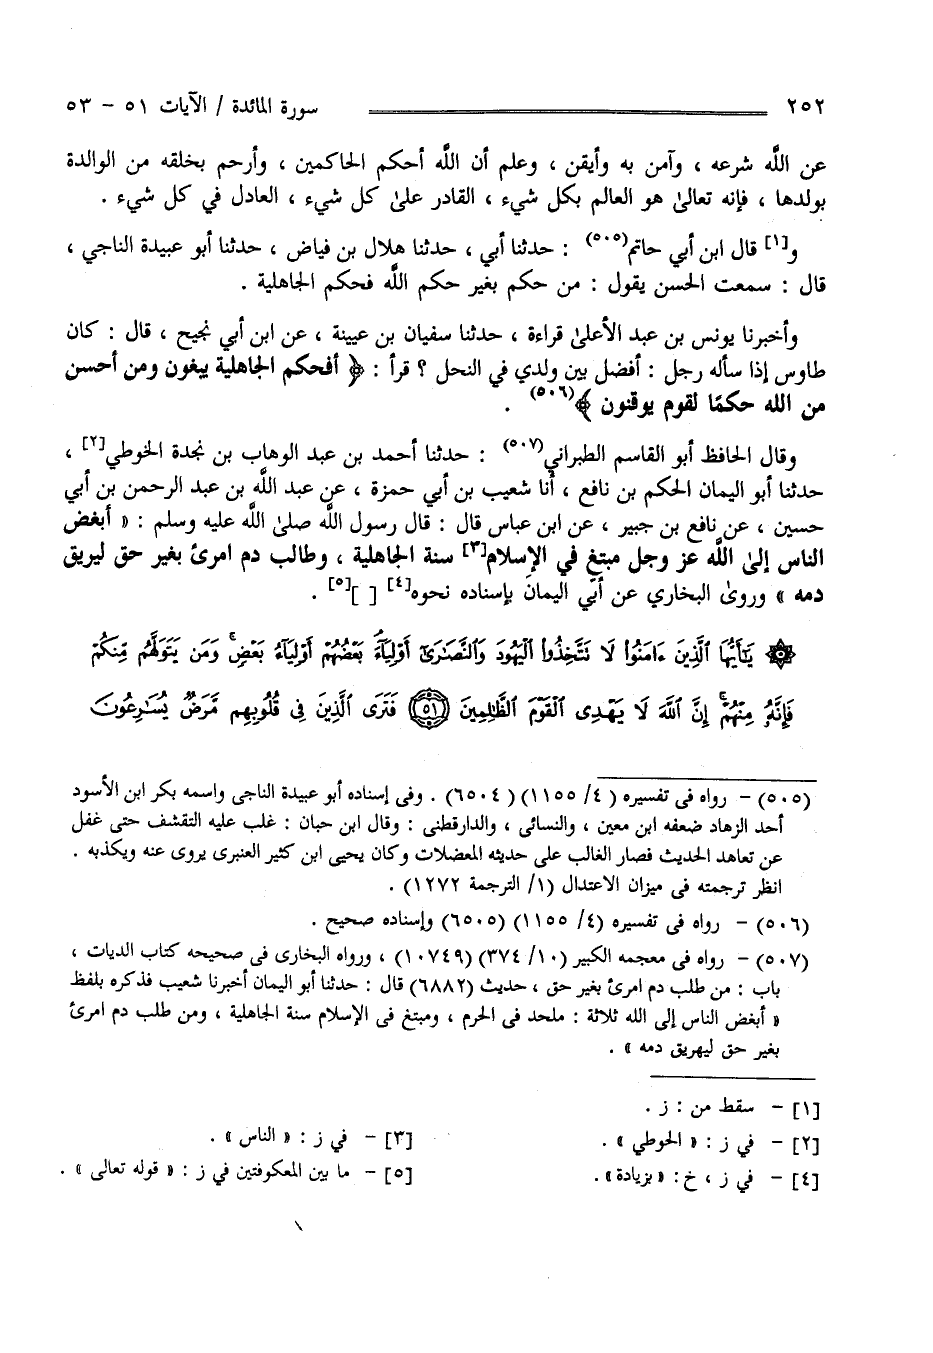 ٢٥٢ سورة المائدة / الآيات ٥١ - ٥٣
عن اللَّه شرعه ، وآمن به وأيقن ، وعلم أن اللَّه أحكم الحاكمين ، وأرحم بخلقه من الوالدة
بولدها ، فإنه تعالىٰ هو العالم بكل شيء ، القادر علىٰ كل شيء ، العادل في كل شيء .
و[١] قال ابن أبي حاتم(٥٠٥) : حدثنا أبي ، حدثنا هلال بن فياض ، حدثنا أبو عبيدة الناجي ،
قال : سمعت الحسن يقول : من حكم بغير حكم اللَّه فحكم الجاهلية .
وأخبرنا يونس بن عبد الأعلىٰ قراءة ، حدثنا سفيان بن عيينة ، عن ابن أبي نجيح ، قال : كان
طاوس إذا سأله رجل : أفضل بين ولدي في النحل ؟ قرأ : ﴿ أفحكم الجاهلية يبغون ومن أحسن
من الله حكمًا لقوم يوقنون ﴾(٥٠٦) .
وقال الحافظ أبو القاسم الطبراني(٥٠٧) : حدثنا أحمد بن عبد الوهاب بن نجدة الخوطي[٢] ،
حدثنا أبو اليمان الحكم بن نافع ، أنا شعيب بن أبي حمزة ، عن عبد اللَّه بن عبد الرحمن بن أبي
حسين ، عن نافع بن جبير ، عن ابن عباس قال : قال رسول اللَّه صلىٰ اللَّه عليه وسلم : « أبغض
الناس إلىٰ اللَّه عز وجل مبتغ في الإسلام[٣] سنة الجاهلية ، وطالب دم امرئ بغير حق ليريق
دمه » وروىٰ البخاري عن أبي اليمان بإسناده نحوه[٤] [ ][٥] .
۞ يَٰٓأَيُّهَا ٱلَّذِينَ ءَامَنُوا۟ لَا تَتَّخِذُوا۟ ٱلْيَهُودَ وَٱلنَّصَٰرَىٰٓ أَوْلِيَآءَ ۘ بَعْضُهُمْ أَوْلِيَآءُ بَعْضٍ ۚ وَمَن يَتَوَلَّهُم مِّنكُمْ
فَإِنَّهُۥ مِنْهُمْ ۗ إِنَّ ٱللَّهَ لَا يَهْدِى ٱلْقَوْمَ ٱلظَّٰلِمِينَ ٥١ فَتَرَى ٱلَّذِينَ فِى قُلُوبِهِم مَّرَضٌ يُسَٰرِعُونَ
(٥٠٥) - رواه فى تفسيره ( ٤/ ١١٥٥) (٦٥٠٤) . وفى إسناده أبو عبيدة الناجى واسمه بكر ابن الأسود
أحد الزهاد ضعفه ابن معين ، والنسائى ، والدارقطنى : وقال ابن حبان : غلب عليه التقشف حتى غفل
عن تعاهد الحديث فصار الغالب على حديثه المعضلات وكان يحيى ابن كثير العنبرى يروى عنه ويكذبه .
انظر ترجمته فى ميزان الاعتدال (١/ الترجمة ١٢٧٢) .
(٥٠٦) - رواه فى تفسيره (٤/ ١١٥٥) (٦٥٠٥) وإسناده صحيح .
(٥٠٧) - رواه فى معجمه الكبير (١٠/ ٣٧٤) (١٠٧٤٩) ، ورواه البخارى فى صحيحه كتاب الديات ،
باب : من طلب دم امرئ بغير حق ، حديث (٦٨٨٢) قال : حدثنا أبو اليمان أخبرنا شعيب فذكره بلفظ
« أبغض الناس إلى الله ثلاثة : ملحد فى الحرم ، ومبتغ فى الإسلام سنة الجاهلية ، ومن طلب دم امرئ
بغير حق ليهريق دمه » .
[١] - سقط من : ز .
[٢] - في ز : « الحوطي » . [٣] - في ز : « الناس » .
[٤] - في ز ، خ : « بزيادة » . [٥] - ما بين المعكوفتين في ز : « قوله تعالى » .